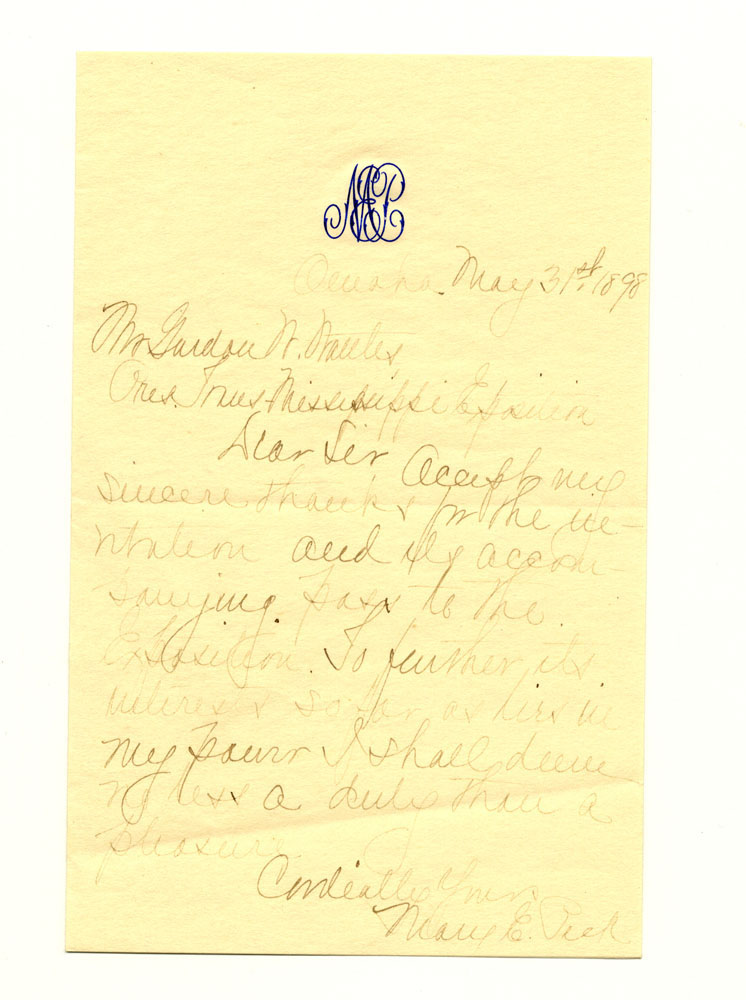 MEP
Omaha. May 31st. 1898
Mr Gurdon W. Wattles,
Pres. Trans-Mississippi Exposition
Dear Sir Accept my
sincere thanks for the in-
vitation and its accom-
panying pass to the
Exposition. To further its
interests so far as lies in
my power I shall deem
no less a duty than a
pleasure.
Cordially Yours
Mary E. Peck